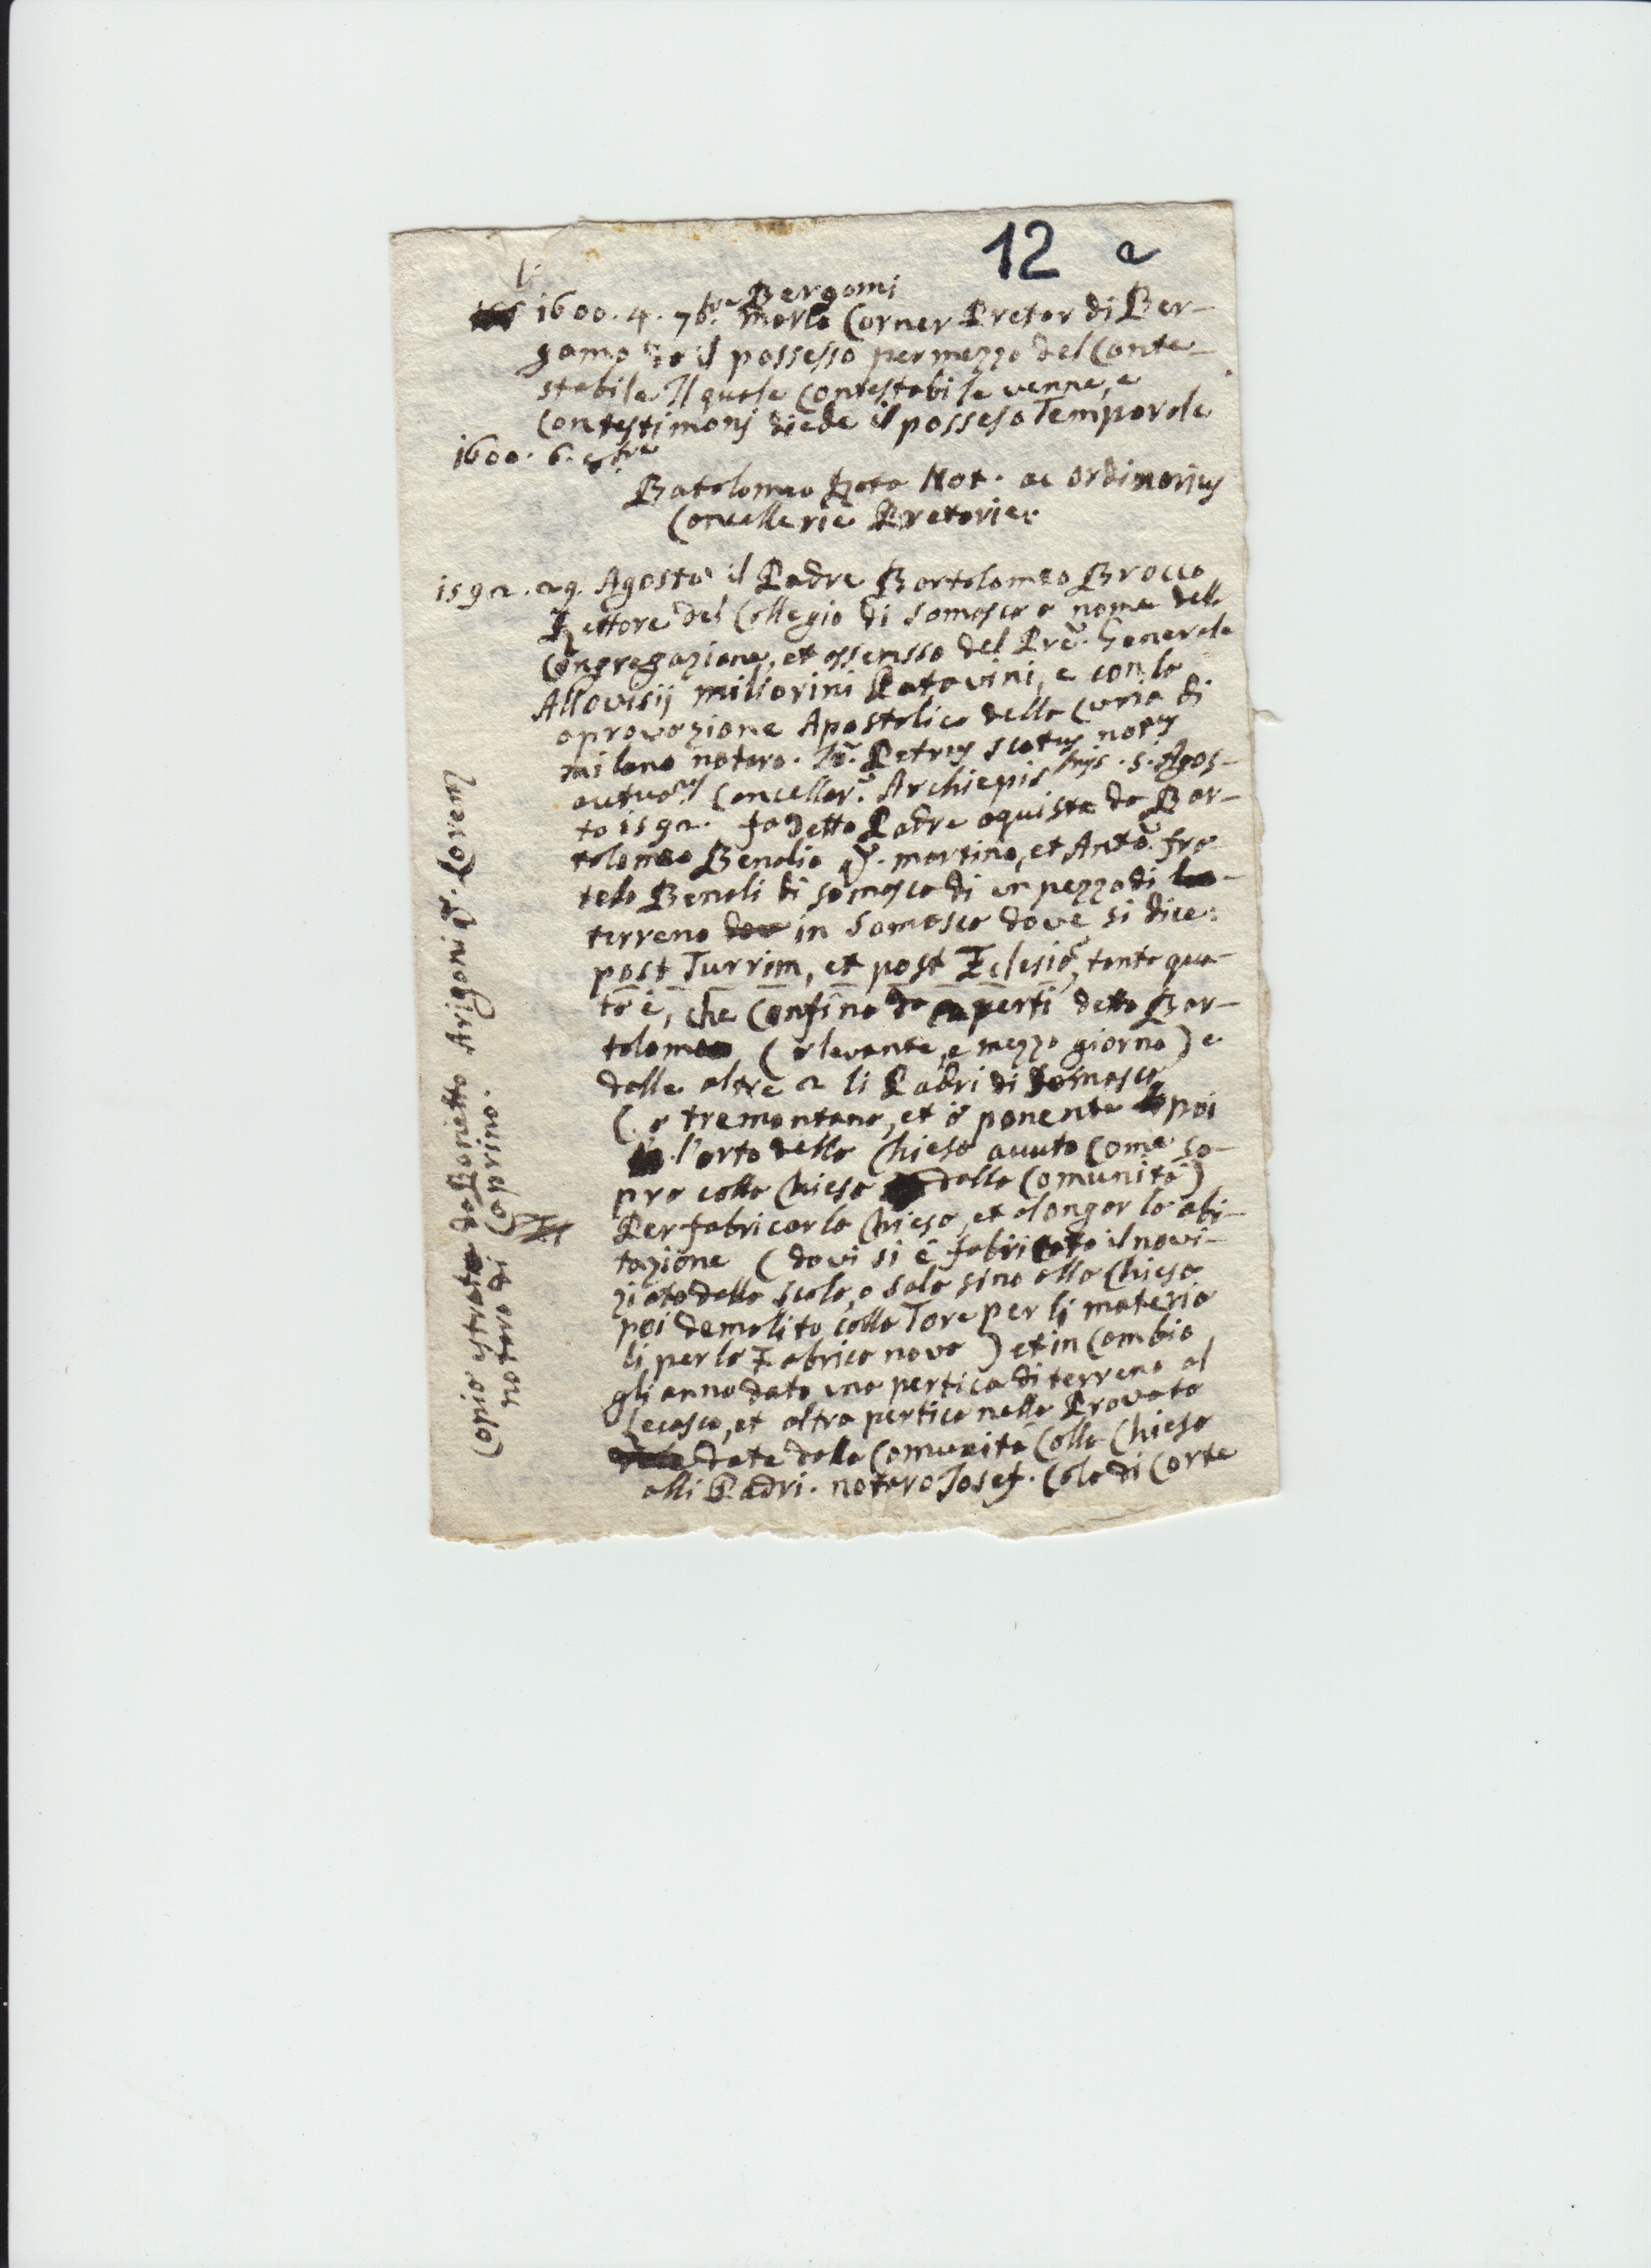 12 a
li
Bergomi
1600. 4. 7bre Marlo Corner Pretor di Ber-
gamo da il possesso per mezzo del Conte-
stabile Il quale Contestabile venne, e
Contestimonj diede il possesso Temporale
1600. 6. 8bre
Batolomeo Not. ac ordinarius
Cancellerie Pretorie.
1592. 29. Agosto il Padre Bortolomeo Brocco
Rettore del Collegio di Somasca a nome della
Congregazione, et assensso del Pre. Generale
Allovisij Miliorini Patavini, e con la
aprovazione Apostolica della Curia di
Milano notaro. Jo. Petrus Scotus notus
actuarus Cancellar. Archiepis. 5. Agos-
to 1592. fa detto Padre aquista da Bor-
tolomeo Benalio q. Martino, et Anto. fra
telo Benali di Somasca di un pezzo di
terreno in Somasca dove si dice:
post Turrim, et post Eclesia, tanto qua-
to è, che Confina da perti detto Bor-
tolomeo (a levante, e mezzo giorno) e
dalle altre 2 li Padri di Somasca
(a tremontana, et a ponente poi
l'orto della Chiesa avuto Come so-
pra colla Chiesa dalla Comunità)
Per fabricar la Chiesa, et alongar la abi-
tazione (dovi si è fabricato il novi-
ziato dalla Scola, o Sala sino alla Chiesa
poi demolito colla Tore per li materia
li per la Fabrica nova) et in Cambio
gli anno dato una pertica di terreno al
Lecasco, et altra pertica nella Provata
date dalla Comunità Colla Chiesa
alli Padri. notaro Josef. Cola di Corte
Copia estrata da Bonetto Arigoni q. Lorenz
notaro di Caprino.